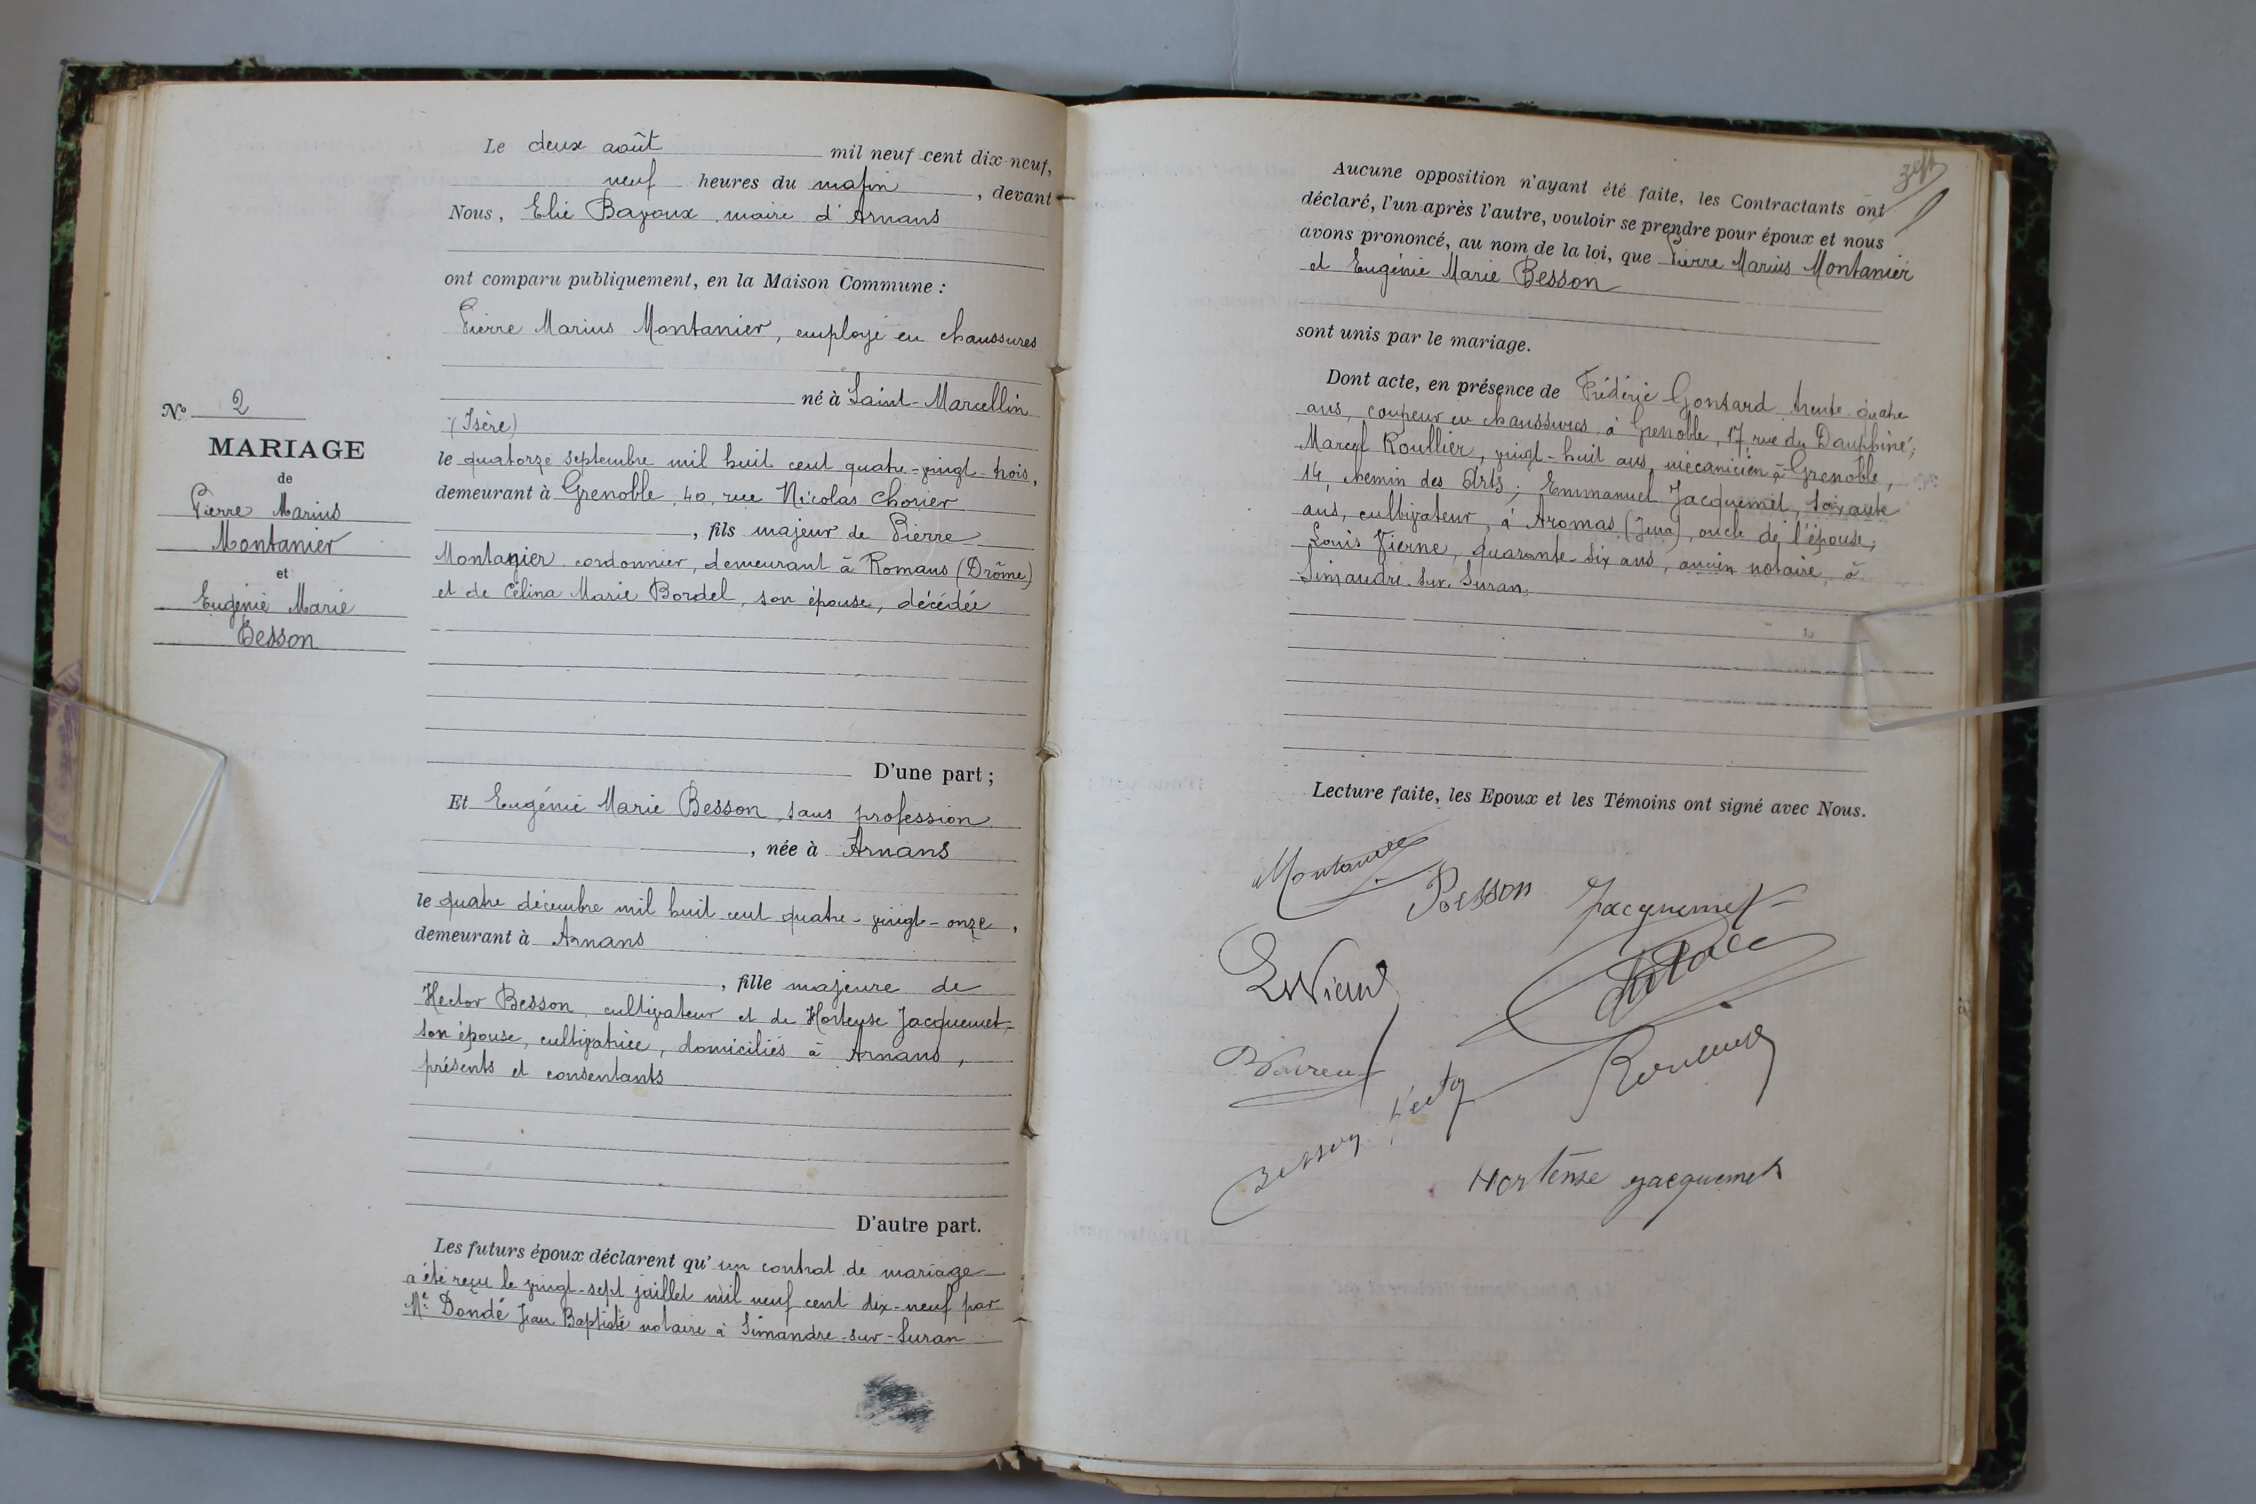 Le deux août mil neuf cent dix-neuf,
neuf heures du matin, devant
Nous, Elie Bayoux maire d'Arnans
ont comparu publiquement, en la Maison Commune :
Pierre Marius Montanier, employé en chaussures
né à Saint-Marcellin
(Isère)
le quatorze septembre mil huit cent quatre-vingt-trois,
demeurant à Grenoble, 40, rue Nicolas Chorier
, fils majeur de Pierre
Montanier cordonnier, demeurant à Romans (Drôme)
et de Célina Marie Bordel, son épouse, décédée
D'une part ;
Et Eugénie Marie Besson, sans profession
, née à Arnans
le quatre décembre mil huit cent quatre-vingt-onze,
demeurant à Arnans
, fille majeure de
Hector Besson, cultivateur et de Hortense Jacquemet,
son épouse, cultivatrice, domiciliés à Arnans,
présents et consentants
D'autre part.
Les futurs époux déclarent qu'un contrat de mariage
a été reçu le vingt-sept juillet mil neuf cent dix-neuf par
Me Dondé Jean Baptiste notaire à Simandre-sur-Suran
No 2
MARIAGE
de
Pierre Marius
Montanier
et
Eugénie Marie
Besson
Aucune opposition n'ayant été faite, les Contractants ont
déclaré, l'un après l'autre, vouloir se prendre pour époux et nous
avons prononcé, au nom de la loi, que Pierre Marius Montanier
et Eugénie Marie Besson
sont unis par le mariage.
Dont acte, en présence de Frédéric Gonsard trente quatre
ans, coupeur en chaussures à Grenoble, 17 rue du Dauphiné;
Marcel Roullier, vingt-huit ans, mécanicien à Grenoble,
14, chemin des Arts; Emmanuel Jacquemet, soixante
ans, cultivateur, à Aromas (Jura), oncle de l'épouse;
Louis Vierne, quarante-six ans, ancien notaire, à
Simandre-sur-Suran,
Lecture faite, les Epoux et les Témoins ont signé avec Nous.
Montanier
Besson Jacquemet
Besson Hector
Hortense Jacquemet